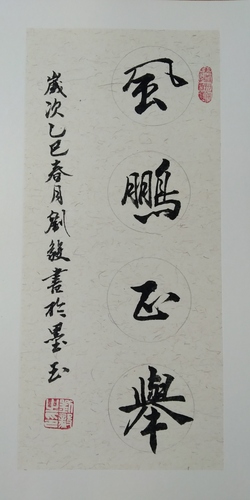 風鵬正舉
歲次乙巳春月劉毅書於墨玉